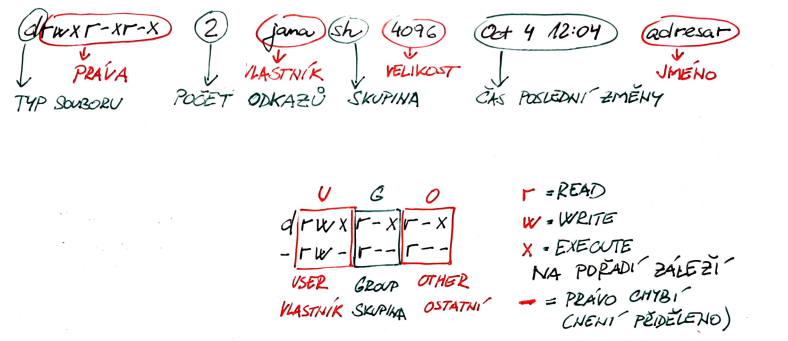 drwxr-xr-x 2 jana sh 4096 Oct 4 12:04 adresar
PRÁVA VLASTNÍK VELIKOST JMÉNO
TYP SOUBORU POČET ODKAZŮ SKUPINA ČAS POSLEDNÍ ZMĚNY
U G O
d rwx r-x r-x
- rw- r-- r--
USER GROUP OTHER
VLASTNÍK SKUPINA OSTATNÍ
r = READ
w = WRITE
x = EXECUTE
NA POŘADÍ ZÁLEŽÍ
- = PRÁVO CHYBÍ
(NENÍ PŘIDĚLENO)